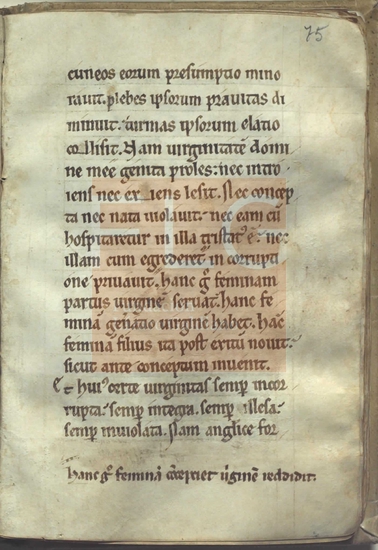 75
cuneos eorum presumptio mino
rauit. plebes ipsorum prauitas di
minuit. turmas ipsorum elatio
collisit. Nam uirginitatē domi
ne mee genita proles: nec intro
iens nec exiens lesit. Nec concep
ta nec nata uiolauit. nec eam cū
hospitaretur in illa tristatꝰ ē. nec
illam cum egrederet̄ in corrupti
one priuauit. hanc gͦ feminam
partus uirginē seruat. hanc fe
minā gen̄atio uirginē habet. Hāc
femina filius ita post exitū nouit.
sicut ante conceptum inuenit.
Et huiꝰ certe uirginitas semp̄ incor
rupta. semp̄ integra. semp̄ illesa.
semp̄ inuiolata. Nam anglice for
hanc gͦ feminā uirginē reddidit.